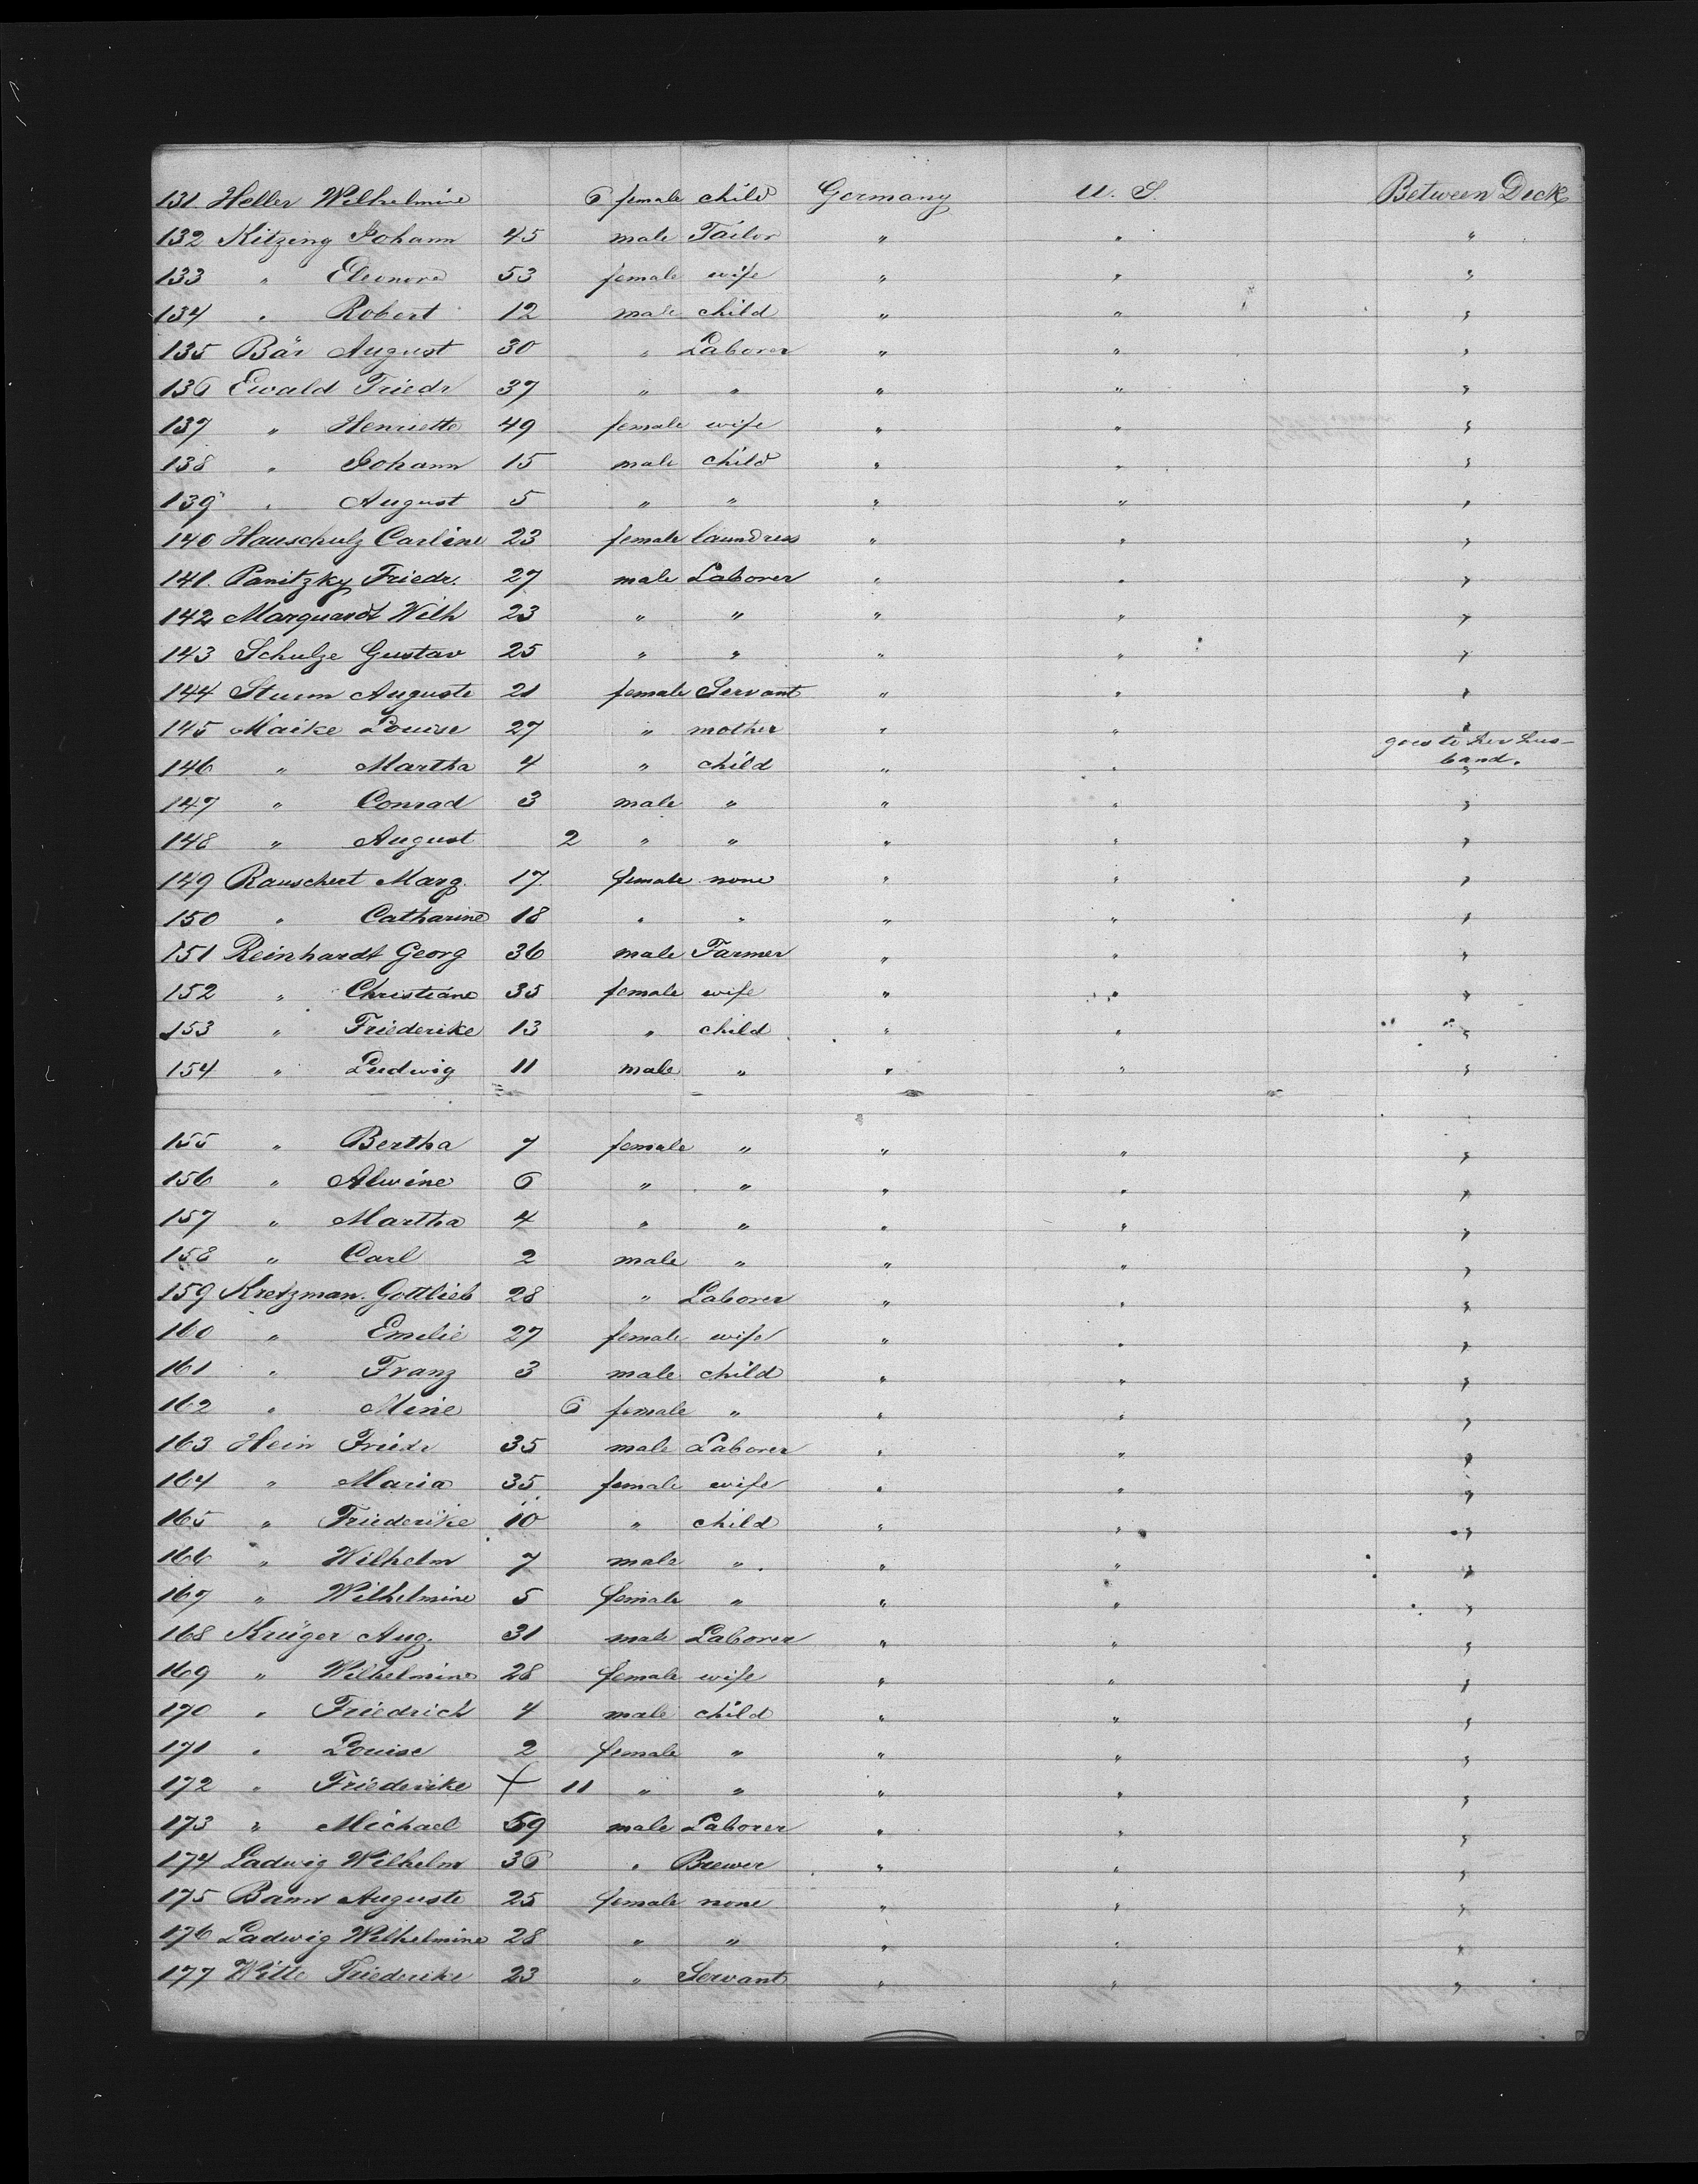 131 Heller Wilhelmine 6 female child Germany U. S. Between Deck
132 Kitzing Johann 45 male Tailor " " "
133 " Eleonore 53 female wife " " "
134 " Robert 12 male child " " "
135 Bär August 30 " Laborer " " "
136 Ewald Friedr 37 " " " " "
137 " Henriette 49 female wife " " "
138 " Johann 15 male child " " "
139 " August 5 " " " " "
140 Hauschulz Carline 23 female laundress " " "
141. Panitzky Friedr. 27 male Laborer " " "
142 Marquardt Wilh 23 " " " " "
143 Schulze Gustav 25 " " " " "
144 Sturm Auguste 21 female Servant " " "
145 Maike Louise 27 " mother " " "
goes to her hus-
band.
146 " Martha 4 " child " " "
147 " Conrad 3 male " " " "
148 " August 2 " " " " "
149 Rauschert Marg. 17. female none " " "
150 " Catharine 18 " " " " "
151 Reinhardt Georg 36 male Farmer " " "
152 " Christiane 35 female wife " " "
153 " Friederike 13 " child " " "
154 " Ludwig 11 male " " " "
155 " Bertha 7 female " " " "
156 " Alwine 6 " " " " "
157 " Martha 4 " " " " "
158 " Carl 2 male " " " "
159 Kretzman. Gottlieb 28 " Laborer " " "
160 " Emilie 27 female wife " " "
161 " Franz 3 male child " " "
162 " Mine 6 female " " " "
163 Hein Friedr 35 male Laborer " " "
164 " Maria 35 female wife " " "
165 " Friederike 10 " child " " "
166 " Wilhelm 7 male " " " "
167 " Wilhelmine 5 female " " " "
168 Krüger Aug. 31 male Laborer " " "
169 " Wilhelmine 28 female wife " " "
170 " Friedrich 4 male child " " "
171 " Louise 2 female " " " "
172 " Friederike 11 " " " " "
173 " Michael 59 male Laborer " " "
174 Ladwig Wilhelm 36 " Brewer " " "
175 Bann Auguste 25 female none " " "
176 Ladwig Wilhelmine 28 " " " " "
177 Witte Friederike 23 " Servant " " "